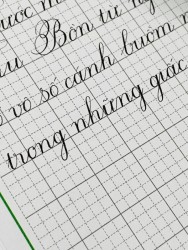 ước m
Bồn từ ng
vô số cánh buồm n
trong những giấc